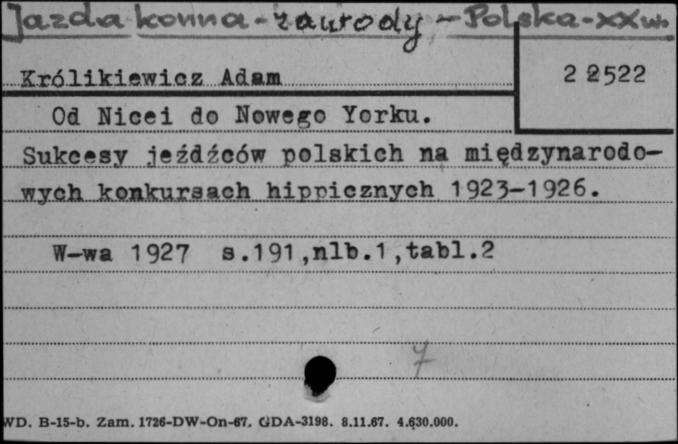 Jazda konna - zawody - Polska - XX w.
Królikiewicz Adam
2 2522
Od Nicei do Nowego Yorku.
Sukcesy jeźdźców polskich na międzynarodo-
wych konkursach hippicznych 1923-1926.
W-wa 1927 s.191,nlb.1,tabl.2
7
WD. B-15-b. Zam. 1726-DW-On-67. GDA-3198. 8.11.67. 4.630.000.